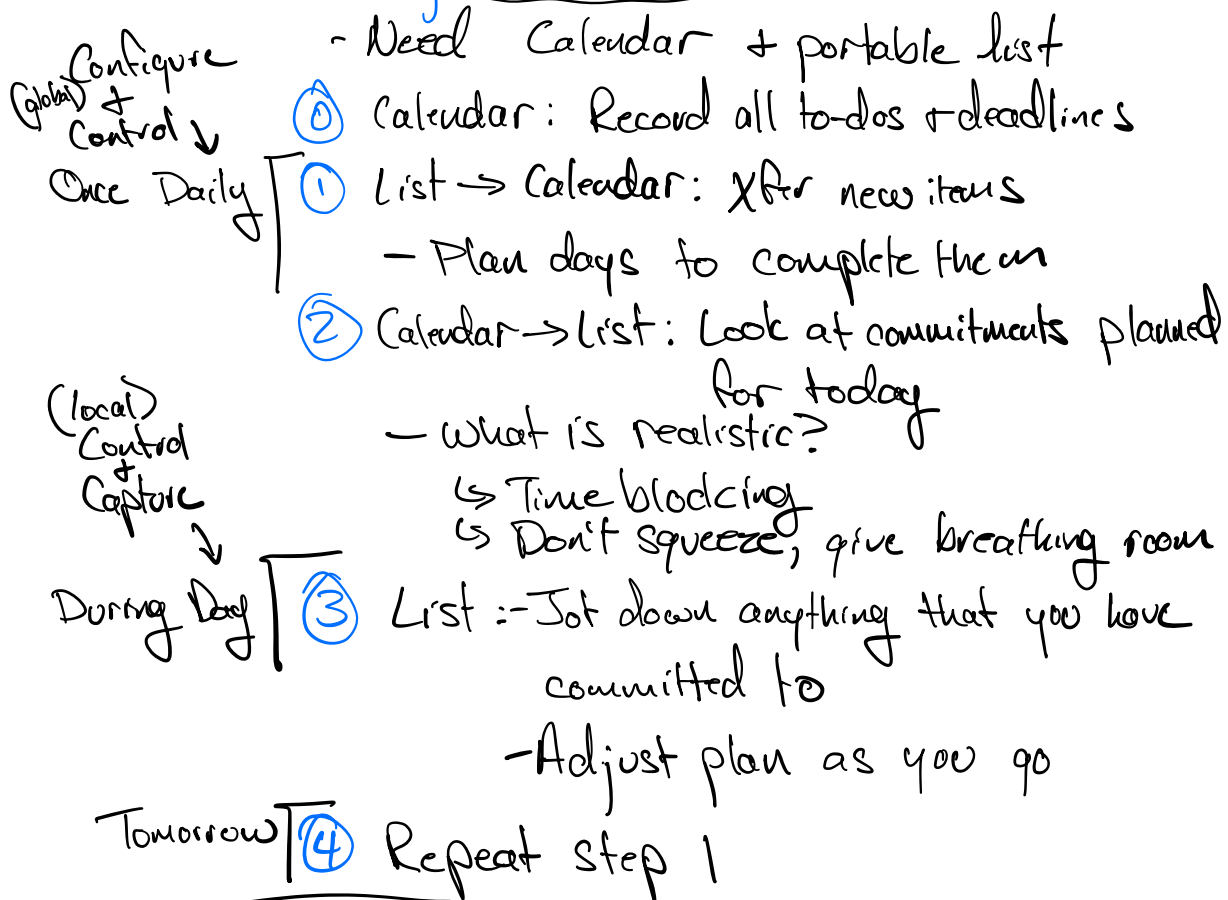 - Need Calendar + portable list
Configure
(global) +
Control ↓
⓪ Calendar: Record all to-dos + deadlines
Once Daily
① List → Calendar: Xfer new items
- Plan days to complete them
② Calendar → List: Look at commitments planned
for today
(local)
Control
+
Capture
↓
- What is realistic?
↳ Time blocking
↳ Don't squeeze, give breathing room
During Day
③ List :- Jot down anything that you have
committed to
- Adjust plan as you go
Tomorrow
④ Repeat step 1